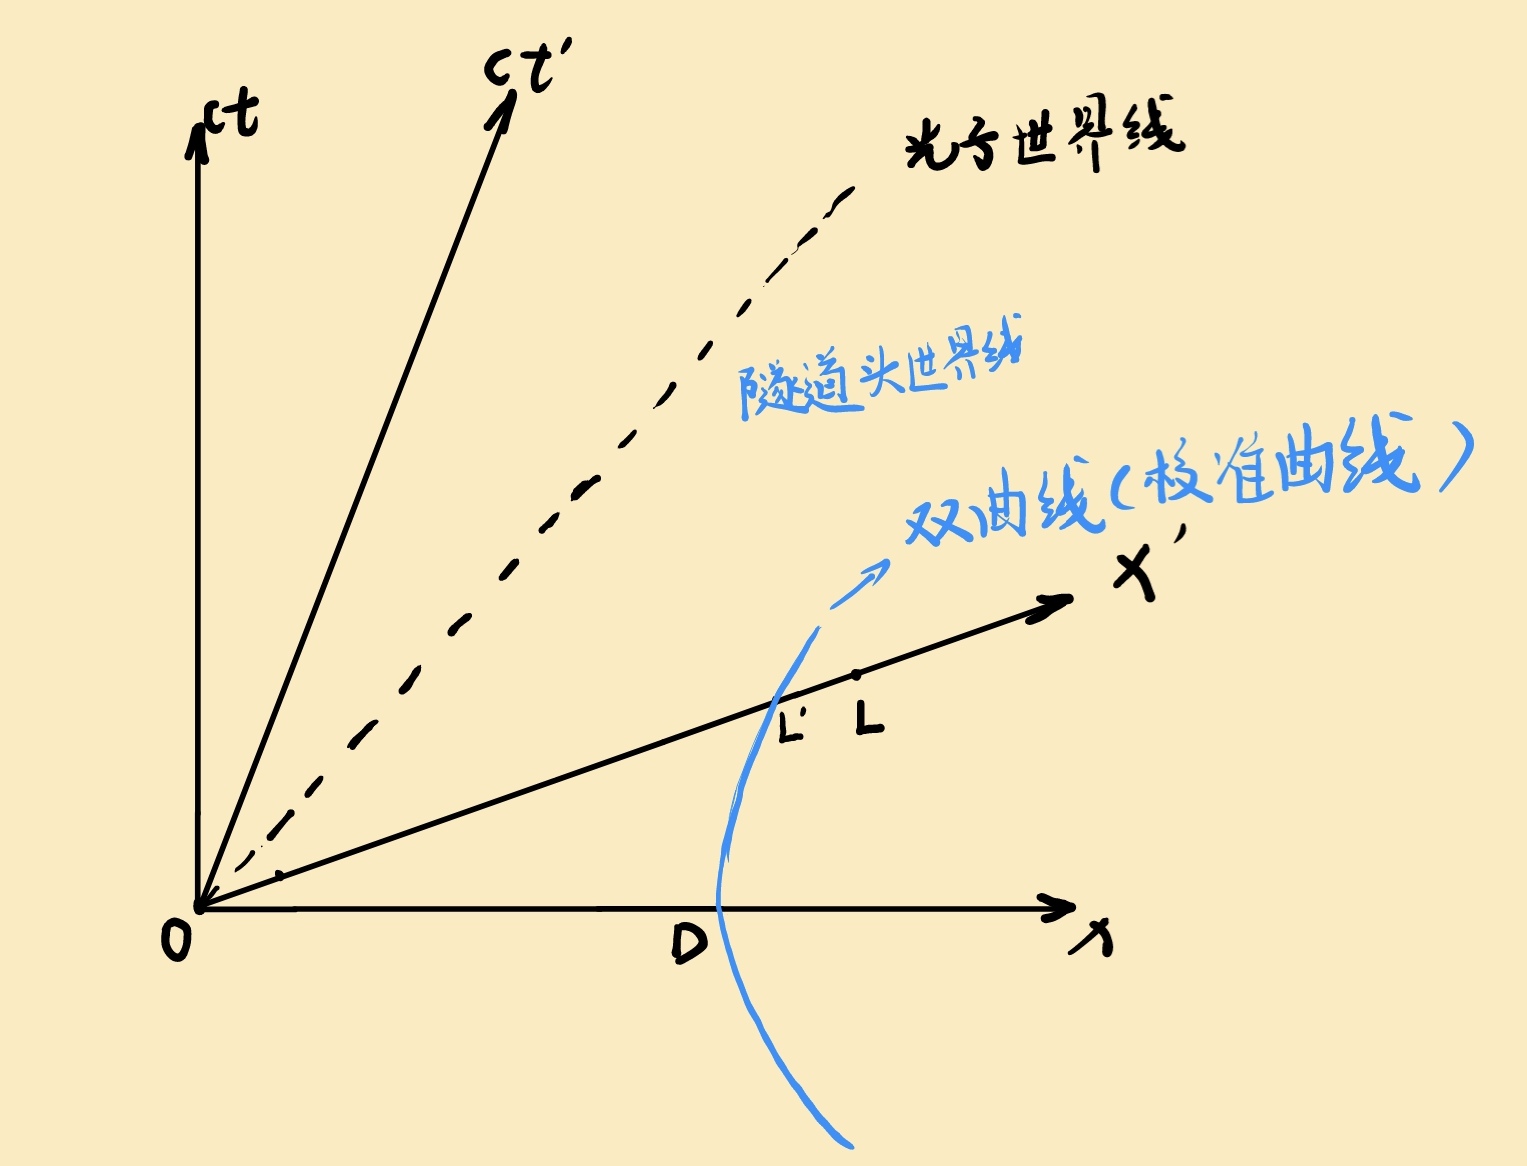 ct
ct'
光子世界线
隧道头世界线
双曲线(校准曲线)
x'
L'
L
O
D
x